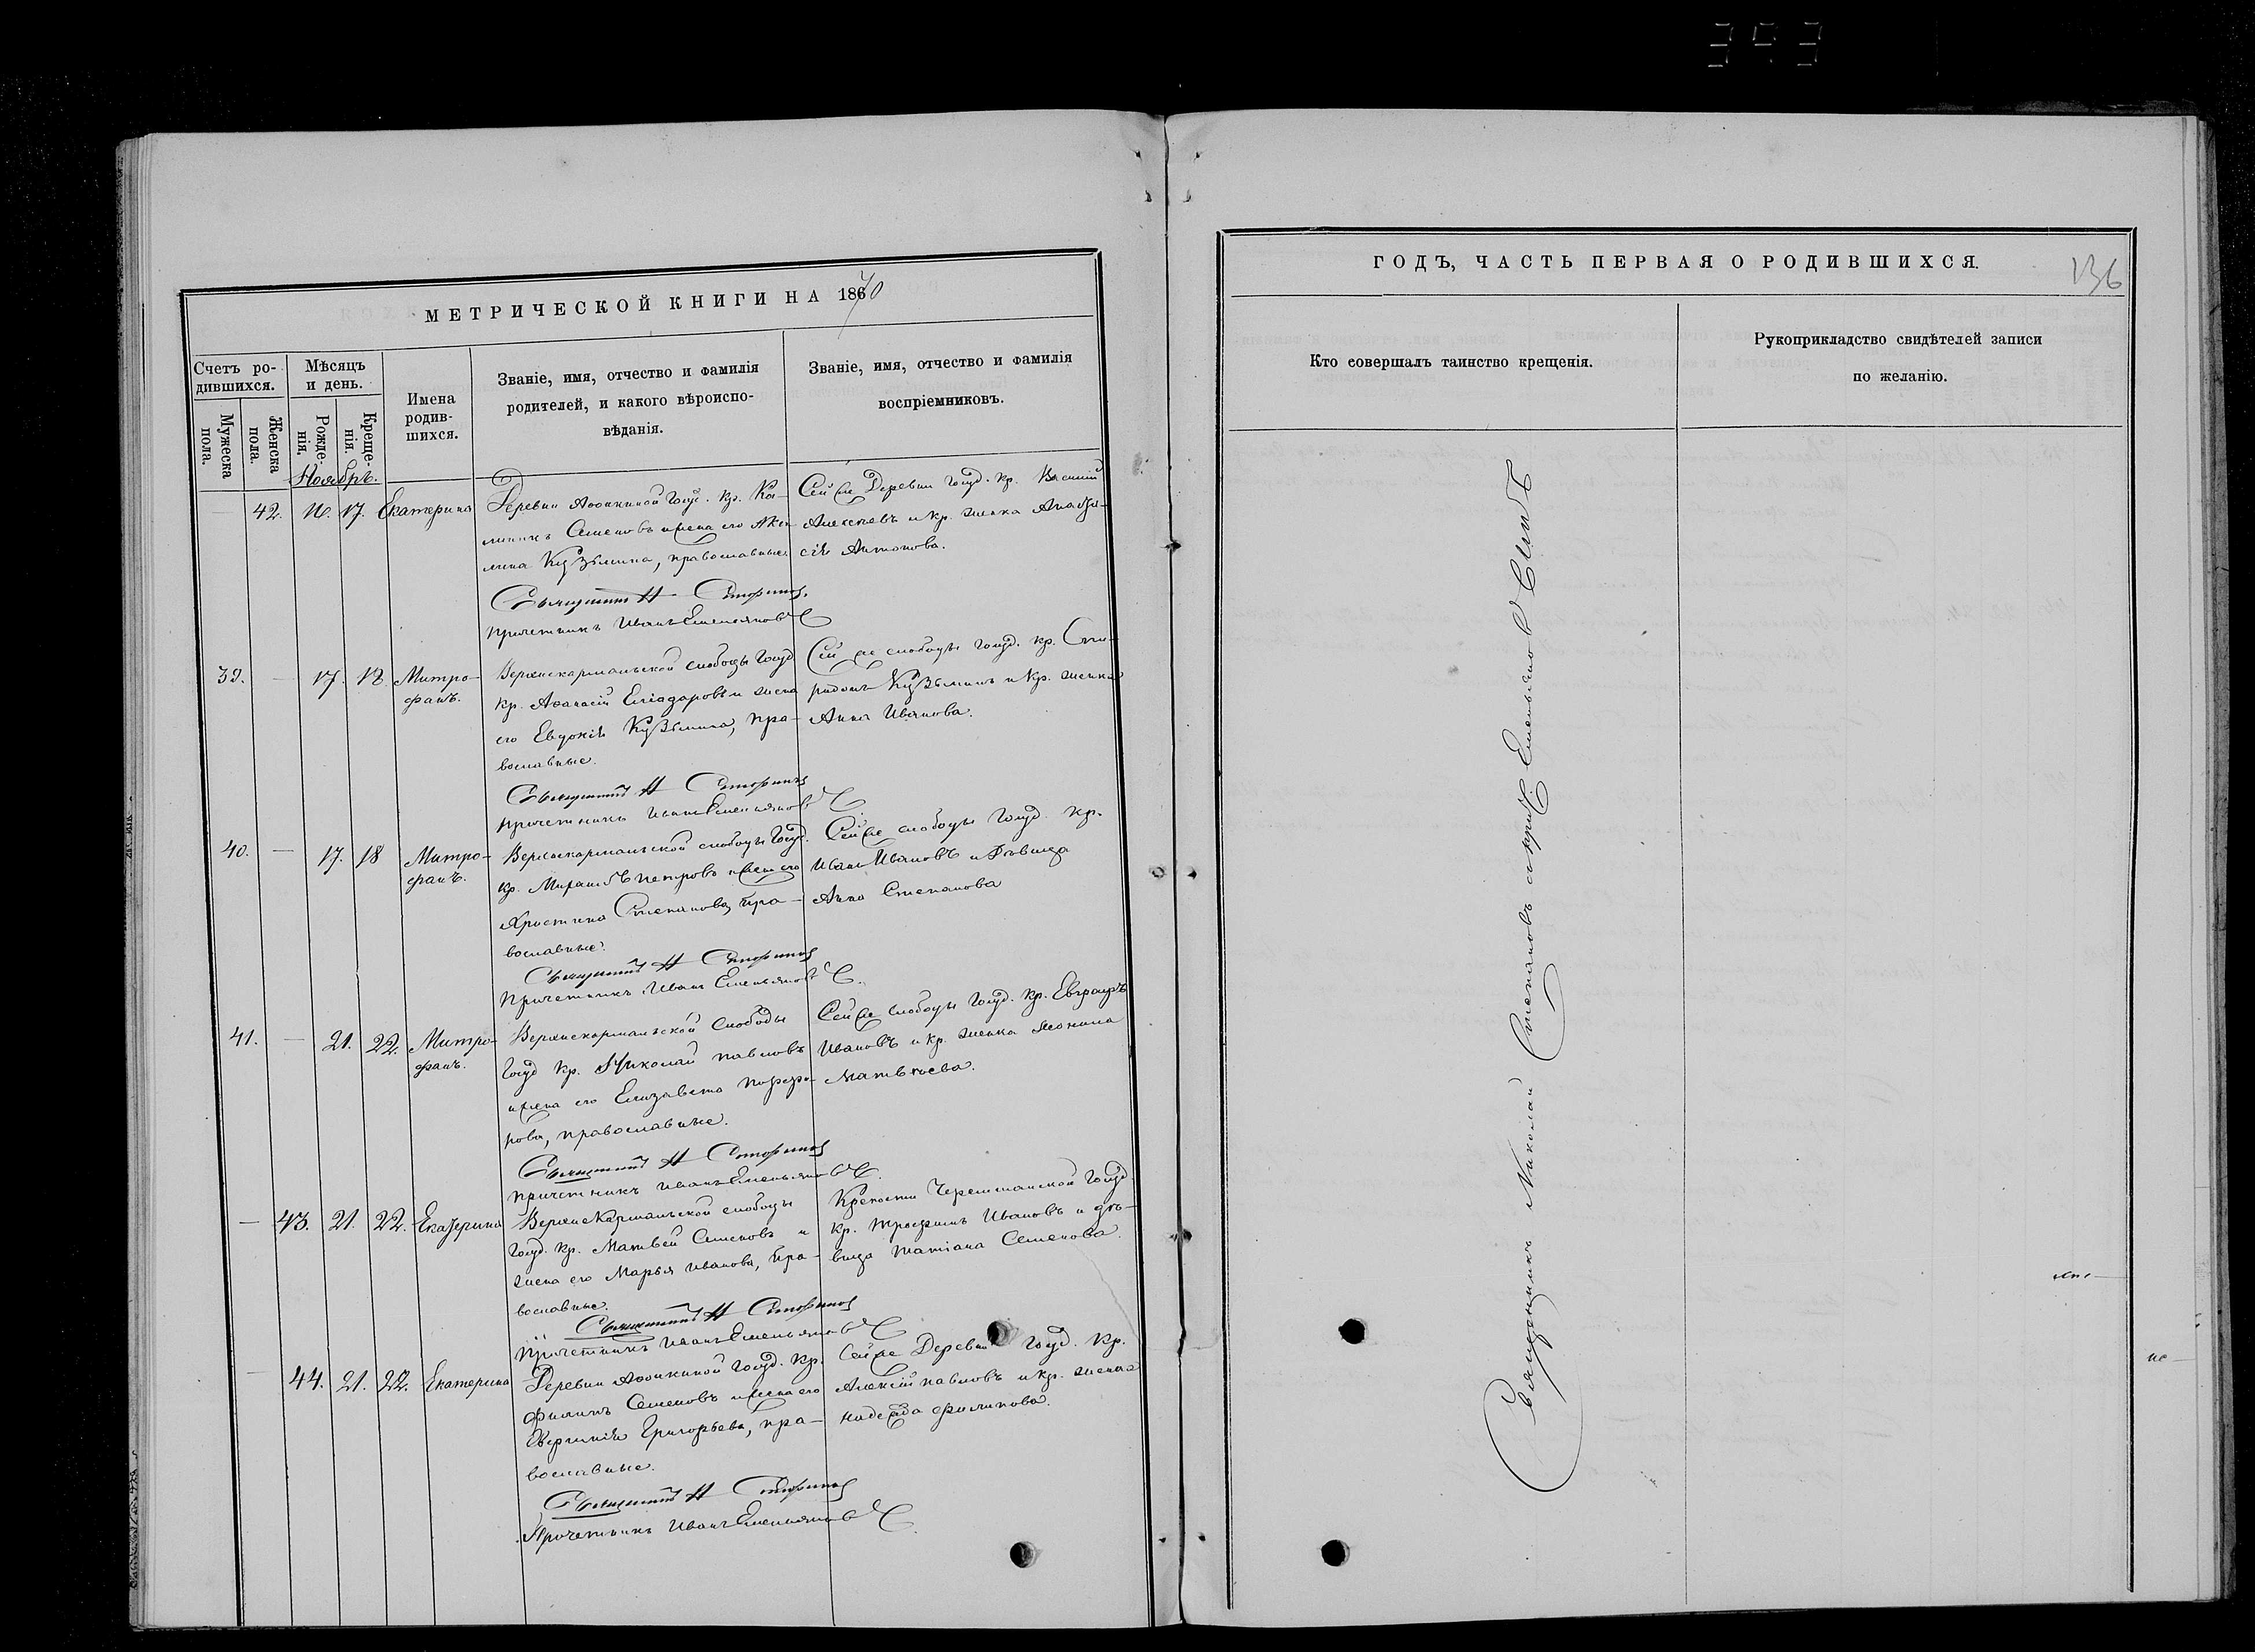 393
МЕТРИЧЕСКОЙ КНИГИ НА 1870
Счетъ ро-
дившихся.
Мужеска
пола.
Женска
пола.
Мѣсяцъ
и день.
Рожде-
нія.
Креще-
нія.
Имена
родив-
шихся.
Званіе, имя, отчество и фамилія
родителей, и какого вѣроиспо-
вѣданія.
Званіе, имя, отчество и фамилія
воспріемниковъ.
Ноябрь.
42. 16. 17. Екатерина
Деревни Афонкиной Госуд. кр.
Семеновъ и жена его
Кузьмина, православные.
Сей же Деревни госуд. кр. Василий
Алексѣевъ и кр. женка
Антонова.
Священникъ Н
Причетникъ Иванъ Емельяновъ
39. — 17. 18. Митро-
фанъ.
слободы Госуд
кр. Афанасій и жена
его Евдокія Кузьмина, пра-
вославные.
Сей же слободы госуд. кр. Спи-
ридонъ Кузьминъ и кр. женка
Анна Иванова.
Священникъ Н
Причетникъ Иванъ Емельяновъ
40. — 17. 18 Митро-
фанъ.
слободы Госуд.
кр. Петровъ и жена его
Христина Степанова, пра-
вославные.
Сей же слободы Госуд. кр.
Иванъ Ивановъ и дѣвица
Анна Степанова
Священникъ Н
Причетникъ Иванъ Емельяновъ
41. — 21. 22. Митро-
фанъ.
слободы
Госуд кр. Николай Павловъ
и жена его Елизавета Порфи-
рова, православные.
Сей же слободы Госуд. кр. Евграфъ
Ивановъ и кр. женка
Матвѣева.
Священникъ Н
Причетникъ Иванъ Емельяновъ
— 43. 21. 22. Екатерина
слободы
Госуд. кр. Матвей Семеновъ и
жена его Марья Иванова, пра-
вославные.
Крепости Черемшанской Госуд.
кр. Трофимъ Ивановъ и дѣ-
вица Татіана Семенова.
Священникъ Н
Причетникъ Иванъ Емельяновъ
— 44. 21. 22. Екатерина
Деревни Афонкиной Госуд. кр.
Филипъ Семеновъ и жена его
Григорьева, пра-
вославные.
Сей же Деревни Госуд. кр.
Алексій Павловъ и кр. женка
Надежда Филипова.
Священникъ Н
Причетникъ Иванъ Емельяновъ
ГОДЪ, ЧАСТЬ ПЕРВАЯ О РОДИВШИХСЯ.
136
Кто совершалъ таинство крещенія.
Рукоприкладство свидѣтелей записи
по желанію.
Священникъ Николай Степановъ Емельяновъ